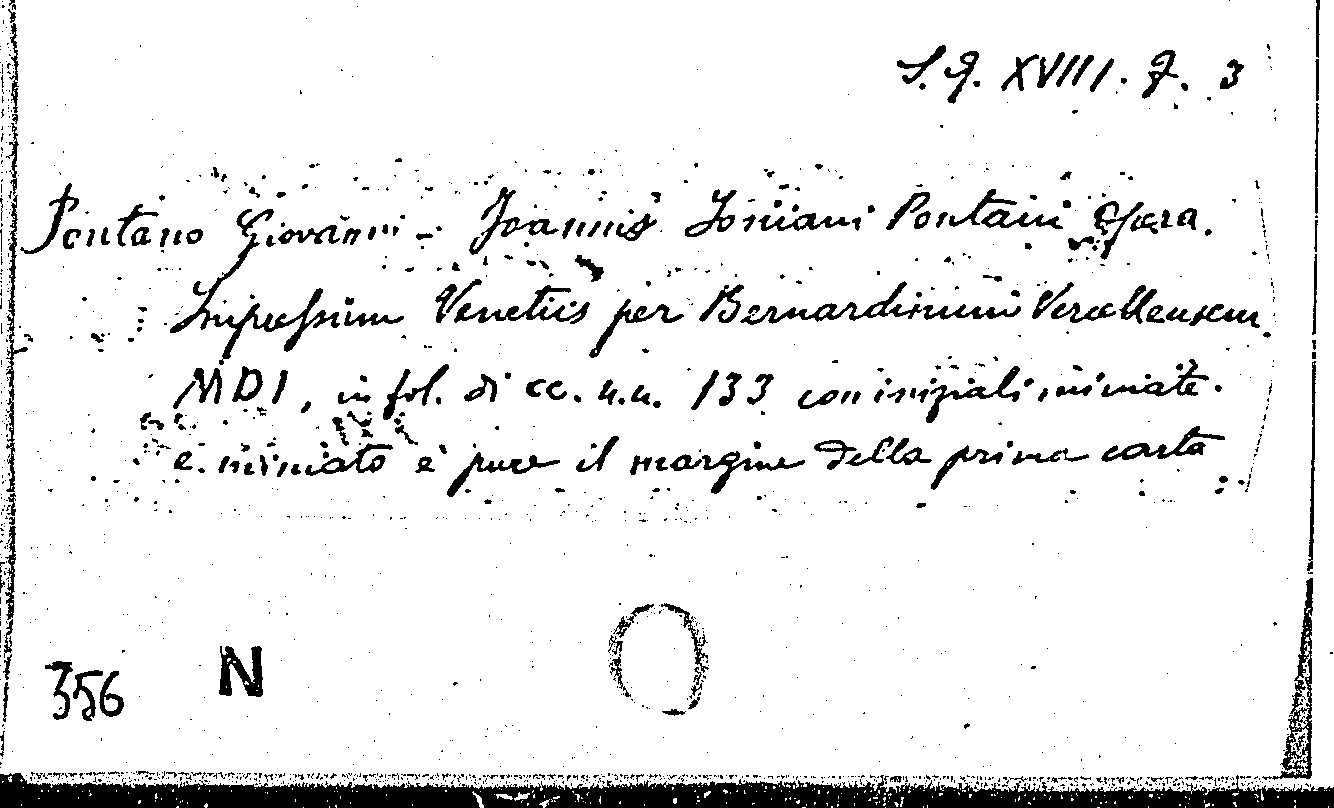 S.Q. XVIII. F. 3
Pontano Giovanni - Joannis Joviani Pontani Opera.
Impressum Venetiis per Bernardinum Vercellensem
MDI, in fol. di cc. n.n. 133 con iniziali miniate.
e miniato è pure il margine della prima carta
356 N